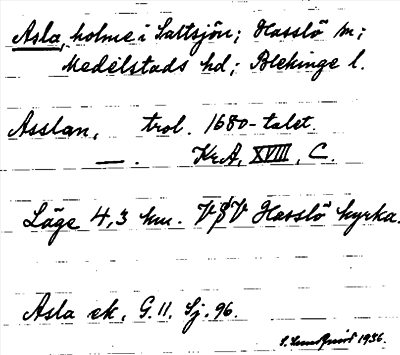 Asla, holme i Saltsjön; Hasslö sn;
Medelstads hd; Blekinge l.
Asslan, trol. 1680-talet.
— . KrA, XVIII, C.
Läge 4,3 km. VSV Hasslö kyrka.
Asla ek, G. 11. Sj. 96.
S. Sundqvist 1936.